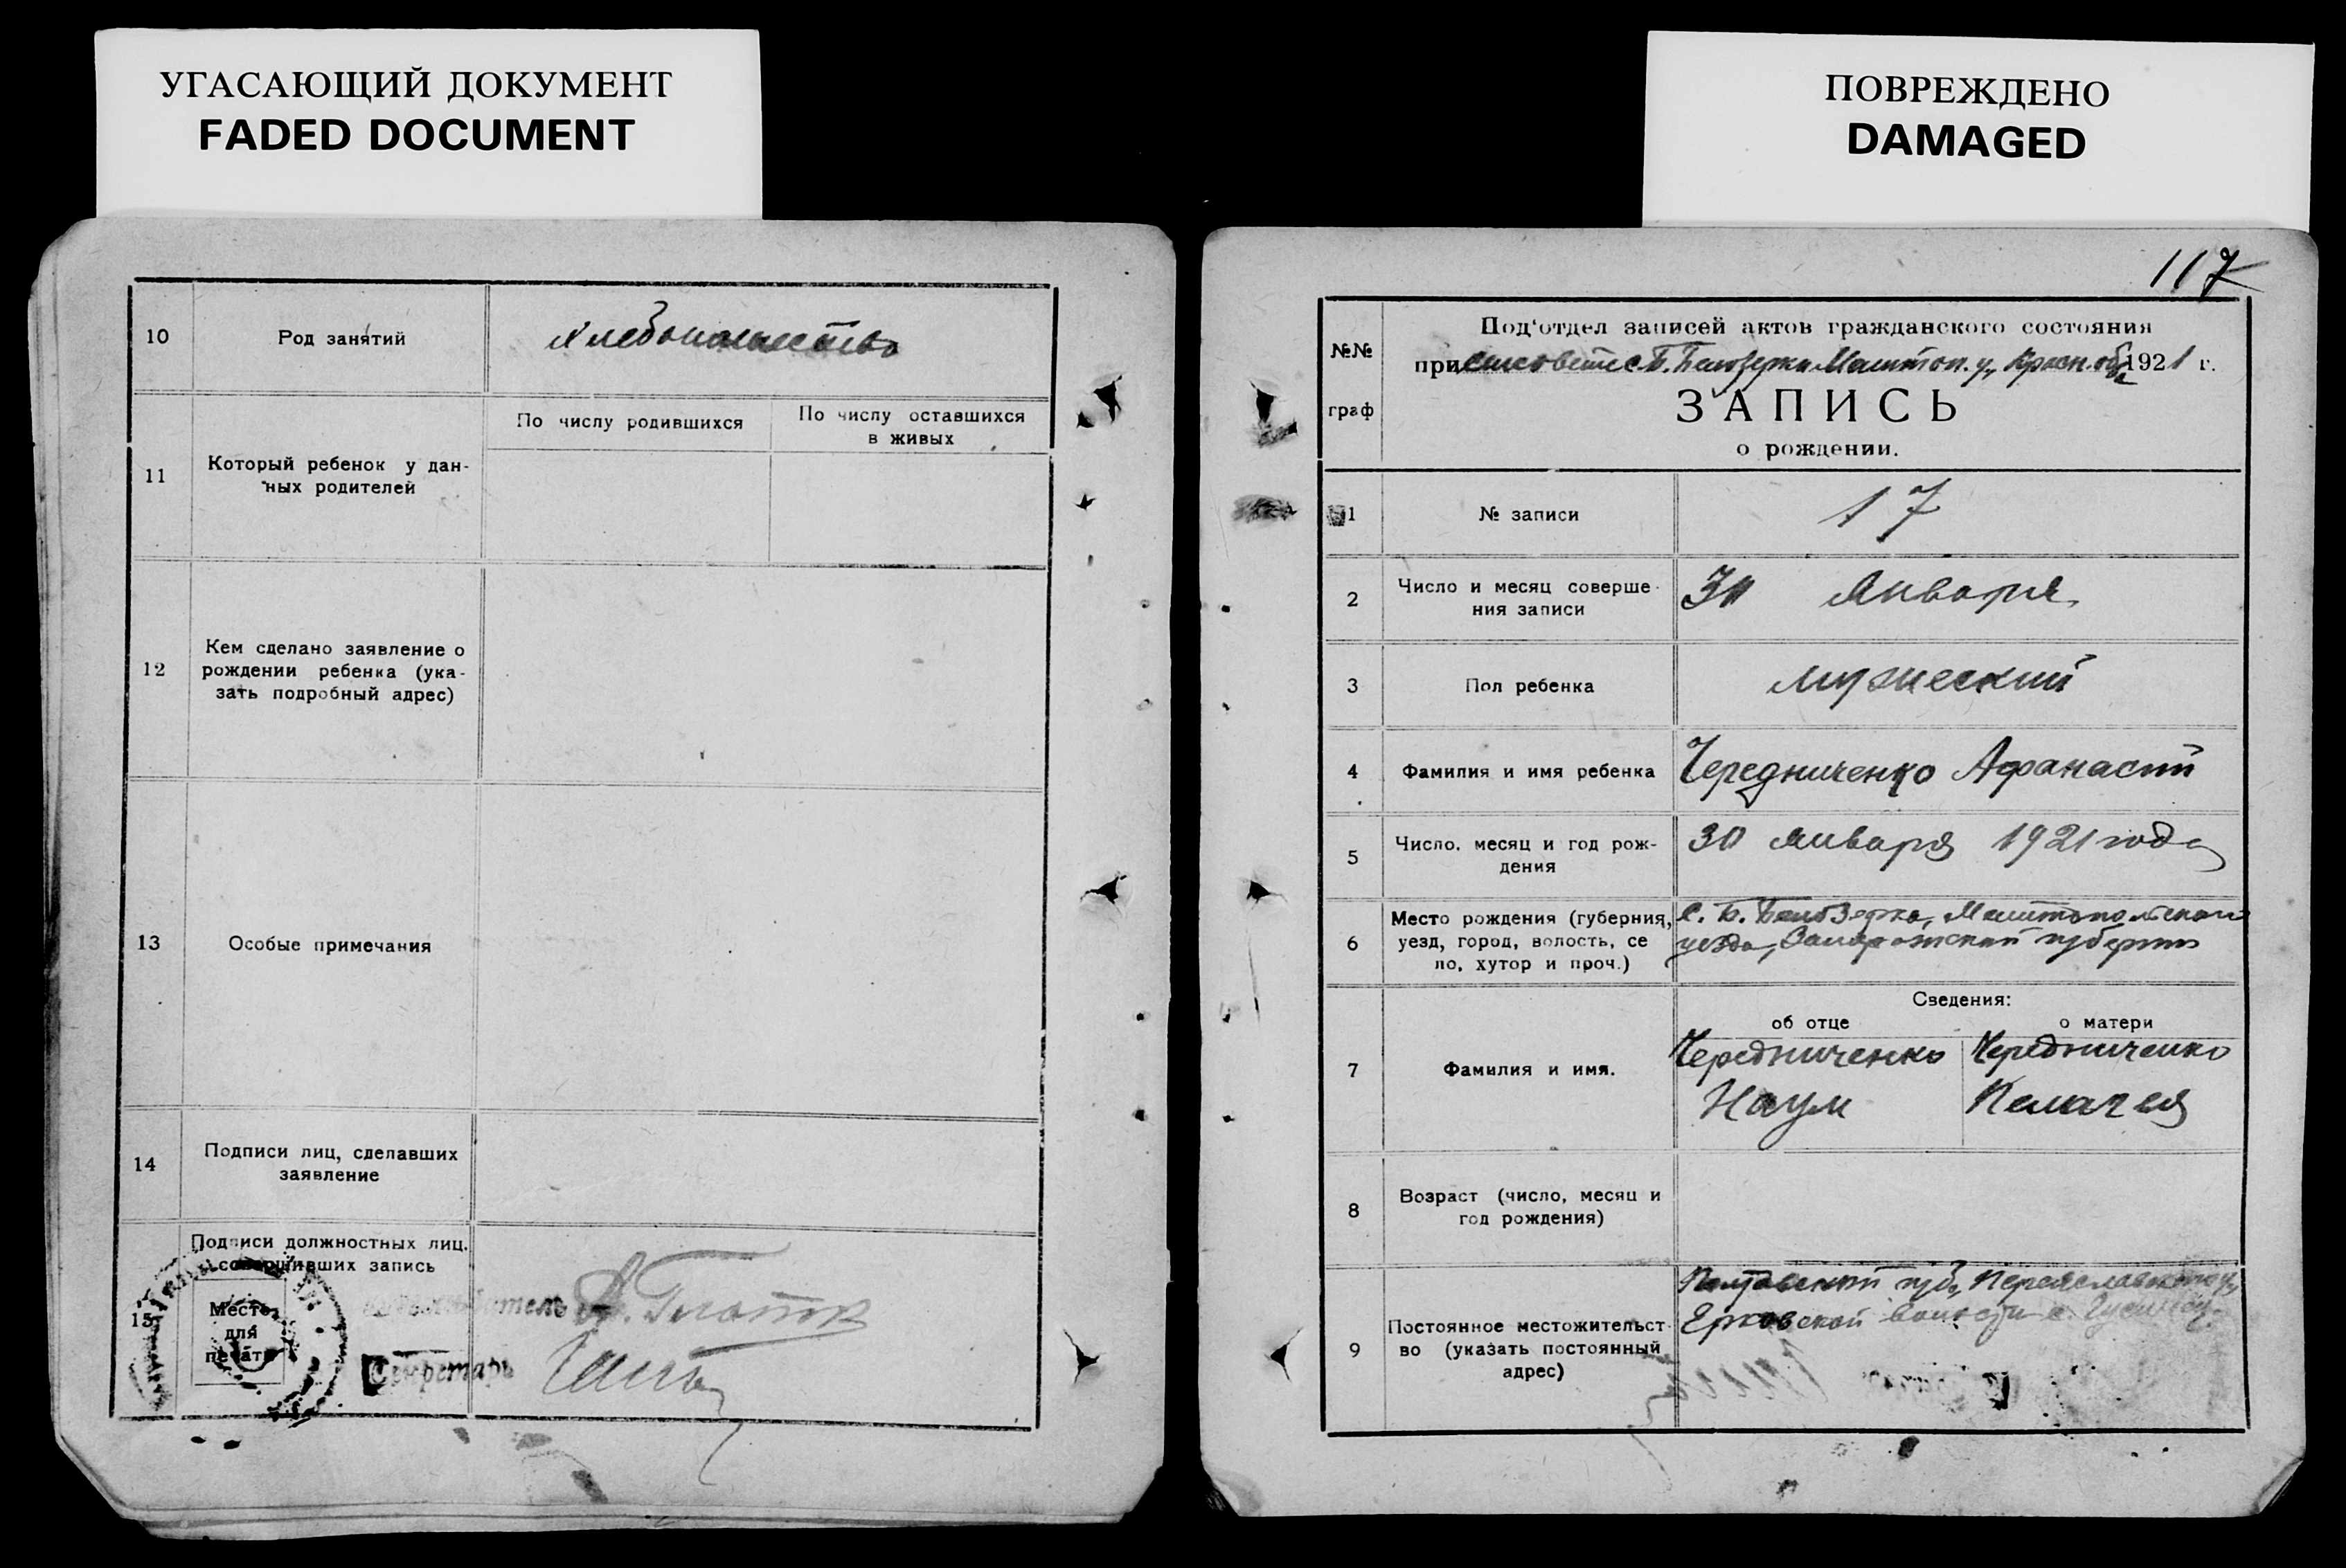 УГАСАЮЩИЙ ДОКУМЕНТ
FADED DOCUMENT
10
Род занятий
Хлебопашество
11
Который ребенок у дан-
ных родителей
По числу родившихся
По числу оставшихся
в живых
12
Кем сделано заявление о
рождении ребенка (ука-
зать подробный адрес)
13
Особые примечания
14
Подписи лиц, сделавших
заявление
15
Подписи должностных лиц,
совершивших запись
Место
для
печати
Секретарь
ПОВРЕЖДЕНО
DAMAGED
117
№№
граф
Под'отдел записей актов гражданского состояния
при с. Б. Белозерка Мелитоп. у. 1921 г.
ЗАПИСЬ
о рождении.
1
№ записи
17
2
Число и месяц соверше-
ния записи
Января
3
Пол ребенка
мужеский
4
Фамилия и имя ребенка
Чередниченко Афанасий
5
Число, месяц и год рож-
дения
30 января 1921 года
6
Место рождения (губерния,
уезд, город, волость, се
ло, хутор и проч.)
с. Б. Белозерка, Мелитопольского
уезда, Запорожской губернии
Сведения:
об отце
о матери
7
Фамилия и имя.
Чередниченко
Наум
Чередниченко
Пелагея
8
Возраст (число, месяц и
год рождения)
9
Постоянное местожительст-
во (указать постоянный
адрес)
Полтавской губ, Переяславского у,
Ерковской волости с.